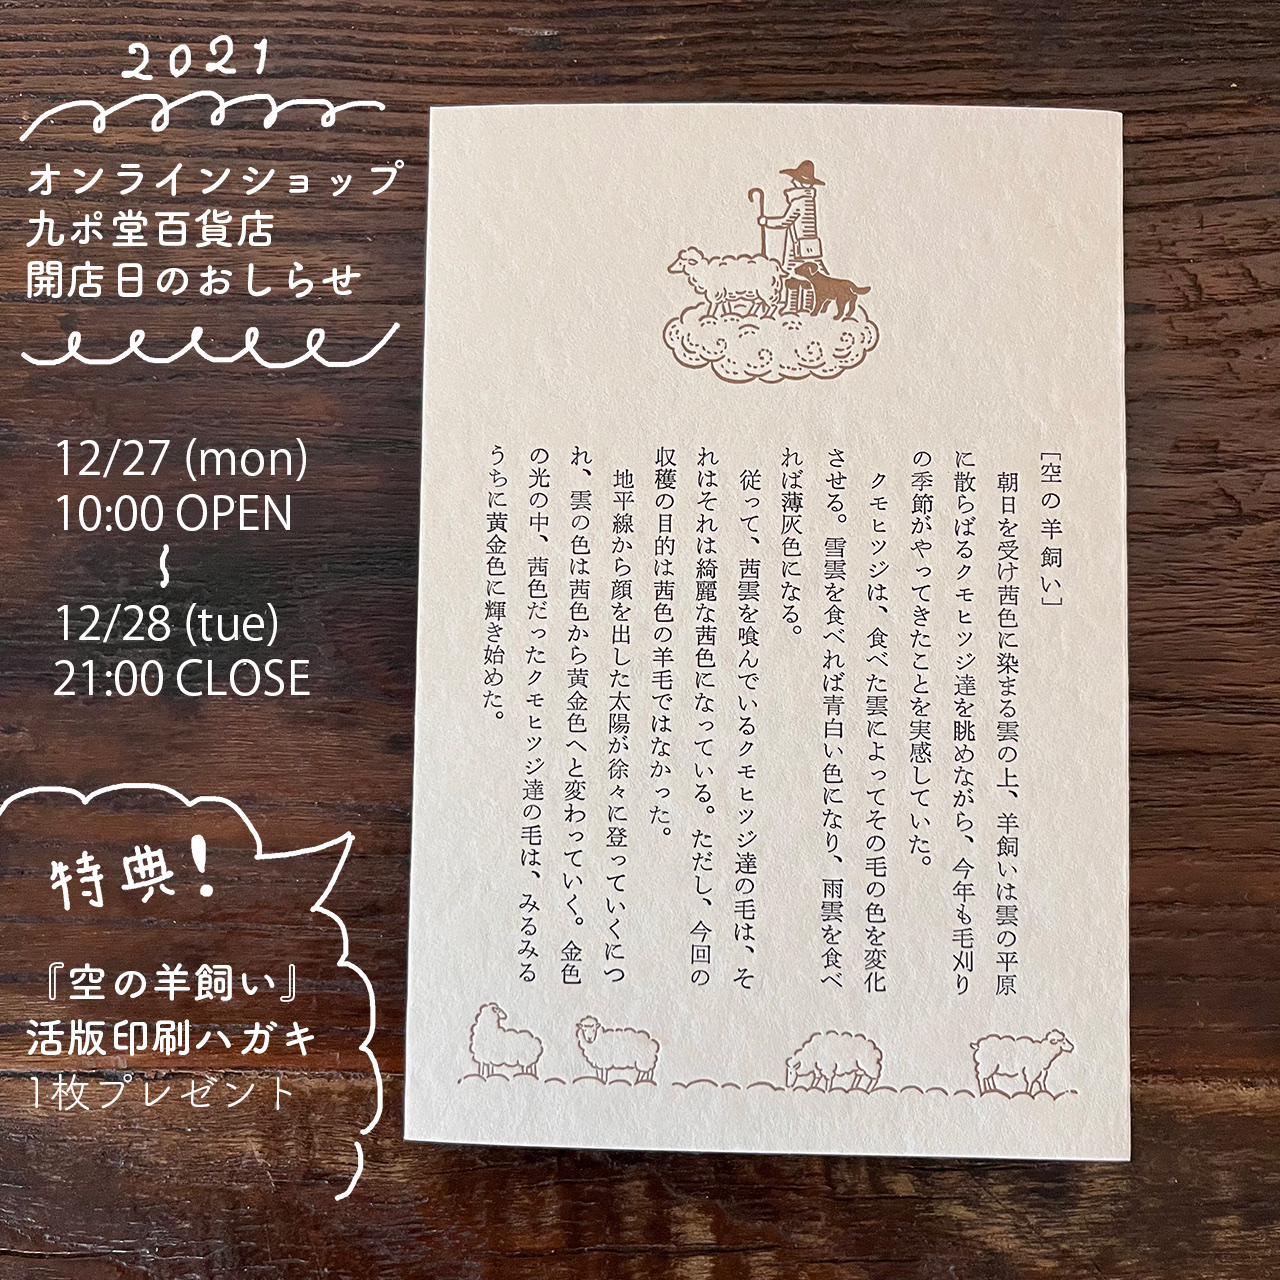 2021
オンラインショップ
九ポ堂百貨店
開店日のおしらせ
12/27 (mon)
10:00 OPEN
~
12/28 (tue)
21:00 CLOSE
特典!
『空の羊飼い』
活版印刷ハガキ
1枚プレゼント
[空の羊飼い]
朝日を受け茜色に染まる雲の上、羊飼いは雲の平原
に散らばるクモヒツジ達を眺めながら、今年も毛刈り
の季節がやってきたことを実感していた。
クモヒツジは、食べた雲によってその毛の色を変化
させる。雪雲を食べれば青白い色になり、雨雲を食べ
れば薄灰色になる。
従って、茜雲を喰んでいるクモヒツジ達の毛は、そ
れはそれは綺麗な茜色になっている。ただし、今回の
収穫の目的は茜色の羊毛ではなかった。
地平線から顔を出した太陽が徐々に登っていくにつ
れ、雲の色は茜色から黄金色へと変わっていく。金色
の光の中、茜色だったクモヒツジ達の毛は、みるみる
うちに黄金色に輝き始めた。